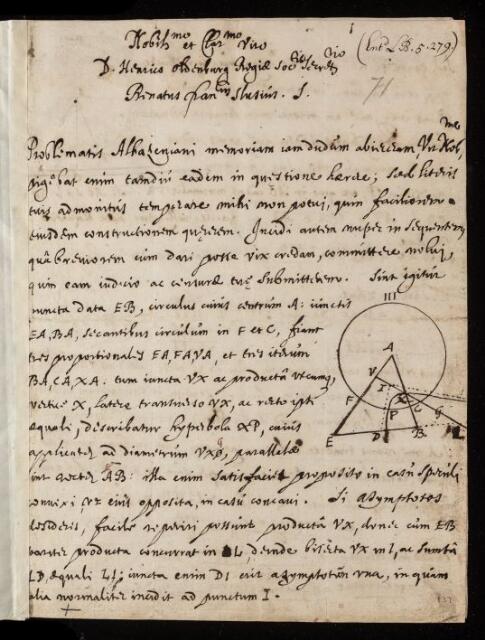 Nobiliss:mo et Clar:mo Viro
(Ent.d L.B. 5. 279.)
D. Henrico Oldenburg Regiæ Soc:tis Secret:rio
71
Renatus Fran:cus Slusius. S.
Problematis Alhazeniani memoriam iamdudum abieceram, Vir Nob:me
pigebat enim tamdiu eadem in quæstione hærere; Sed literis
tuis admonitus temperare mihi non potui, quin faciliorem
eiusdem constructionem quærerem. Incidi autem nuper in sequentem
quâ breviorem cùm dari posse vix credam, committere nolui,
quin eam iudicio ac censuræ tuæ submitterem. Sint igitur
III
puncta data E B, circulus cuius centrum A: iunctis
EA, BA, secantibus circulum in F et C, fiant
tres proportionales EA, FA, VA, et tres iterum
BA, CA, XA. tum iuncta VX ac productâ utcumq,
vertice X, latere transverso VX, ac recto ipsi
æquali, describatur hyperbola XP, cuius
applicatæ ad diametrum VX, parallelæ
sint rectæ AB: illa enim satisfaciet proposito in casu speculi
convexi, et eius opposita, in casu concavi. Si asymptotos
desideres, facile reperiri possunt productâ VX, donec cùm EB
pariter producta concurrat in L, deinde bisectâ VX in I, ac sumtâ
LD æquali LI; iuncta enim DI erit asymptotôn una, in quam
alia normaliter incidit ad punctum I.
A
V
I
X
F
P
C
g
E
D
B
L